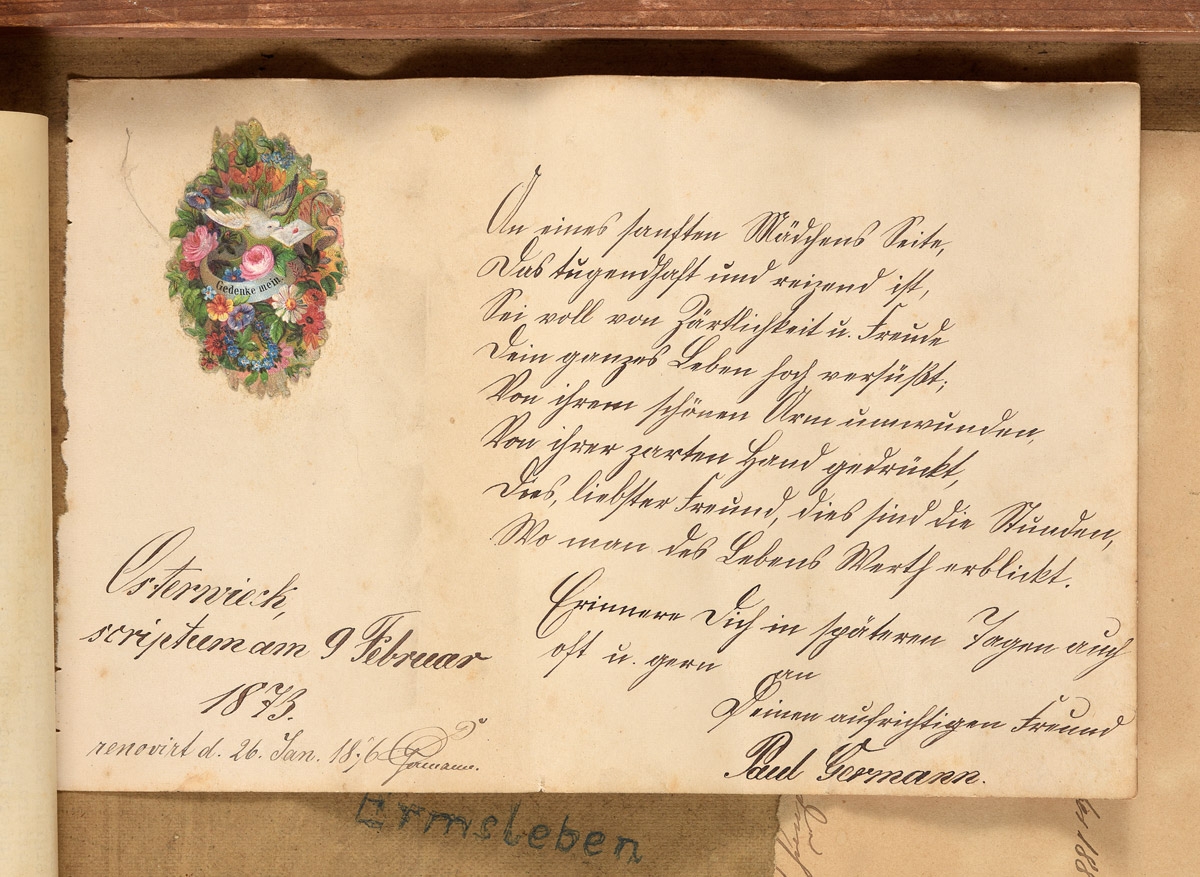 Gedenke mein.
An eines sanften Mädchens Seite,
Das tugendhaft und reizend ist,
Sei voll von Zärtlichkeit u. Freude
Dein ganzes Leben hoch versüßt;
Von ihrem schönen Arm umwunden,
Von ihrer zarten Hand gedrückt,
Dies, liebster Freund, dies sind die Stunden,
Wo man des Lebens Werth erblickt.
Erinnere Dich in späteren Tagen auch
oft u. gern an
Deinen aufrichtigen Freund
Paul Germann.
Osterwieck,
scriptum am 9 Februar
1873.
renovirt d. 26. Jan. 1876
Ermsleben